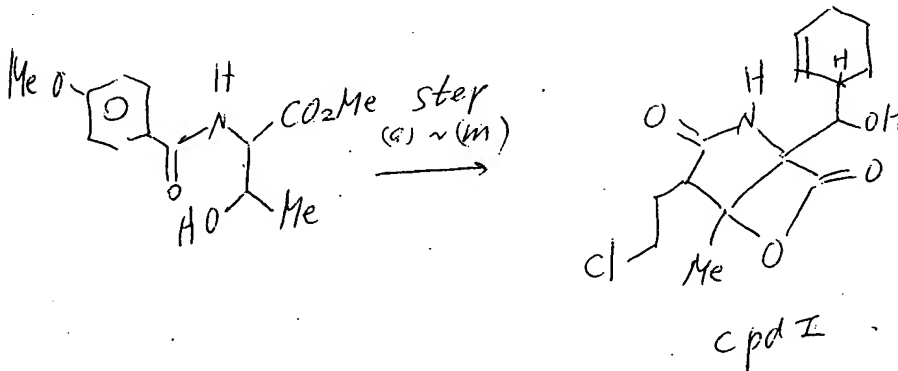 Me O
H
N
CO₂Me
O
HO
Me
step
(a) ~ (m)
H
H
O
N
OH
O
Cl
Me
O
cpd I